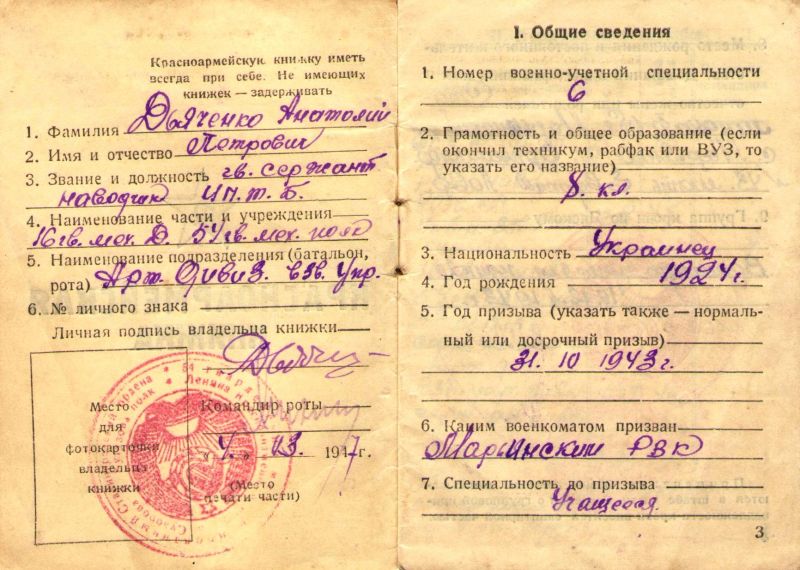 Красноармейскую книжку иметь
всегда при себе. Не имеющих
книжек — задерживать
1. Фамилия Дьяченко Анатолий
2. Имя и отчество Петрович
3. Звание и должность гв. сержант
наводчик
4. Наименование части и учреждения
16 гв. мех. Д. 54 гв. мех. полк
5. Наименование подразделения (батальон,
рота) Арт. Дивиз. взв. Упр.
6. № личного знака
Личная подпись владельца книжки
Место
для
фотокарточки
владельца
книжки
Командир роты
„4" 03 1947г.
(Место
печати части)
1. Общие сведения
1. Номер военно-учетной специальности
6
2. Грамотность и общее образование (если
окончил техникум, рабфак или ВУЗ, то
указать его название)
8. кл.
3. Национальность Украинец
4. Год рождения 1924г.
5. Год призыва (указать также — нормаль-
ный или досрочный призыв)
31. 10 1943г.
6. Каким военкоматом призван
Марьинский РВК
7. Специальность до призыва
Учащегося
3